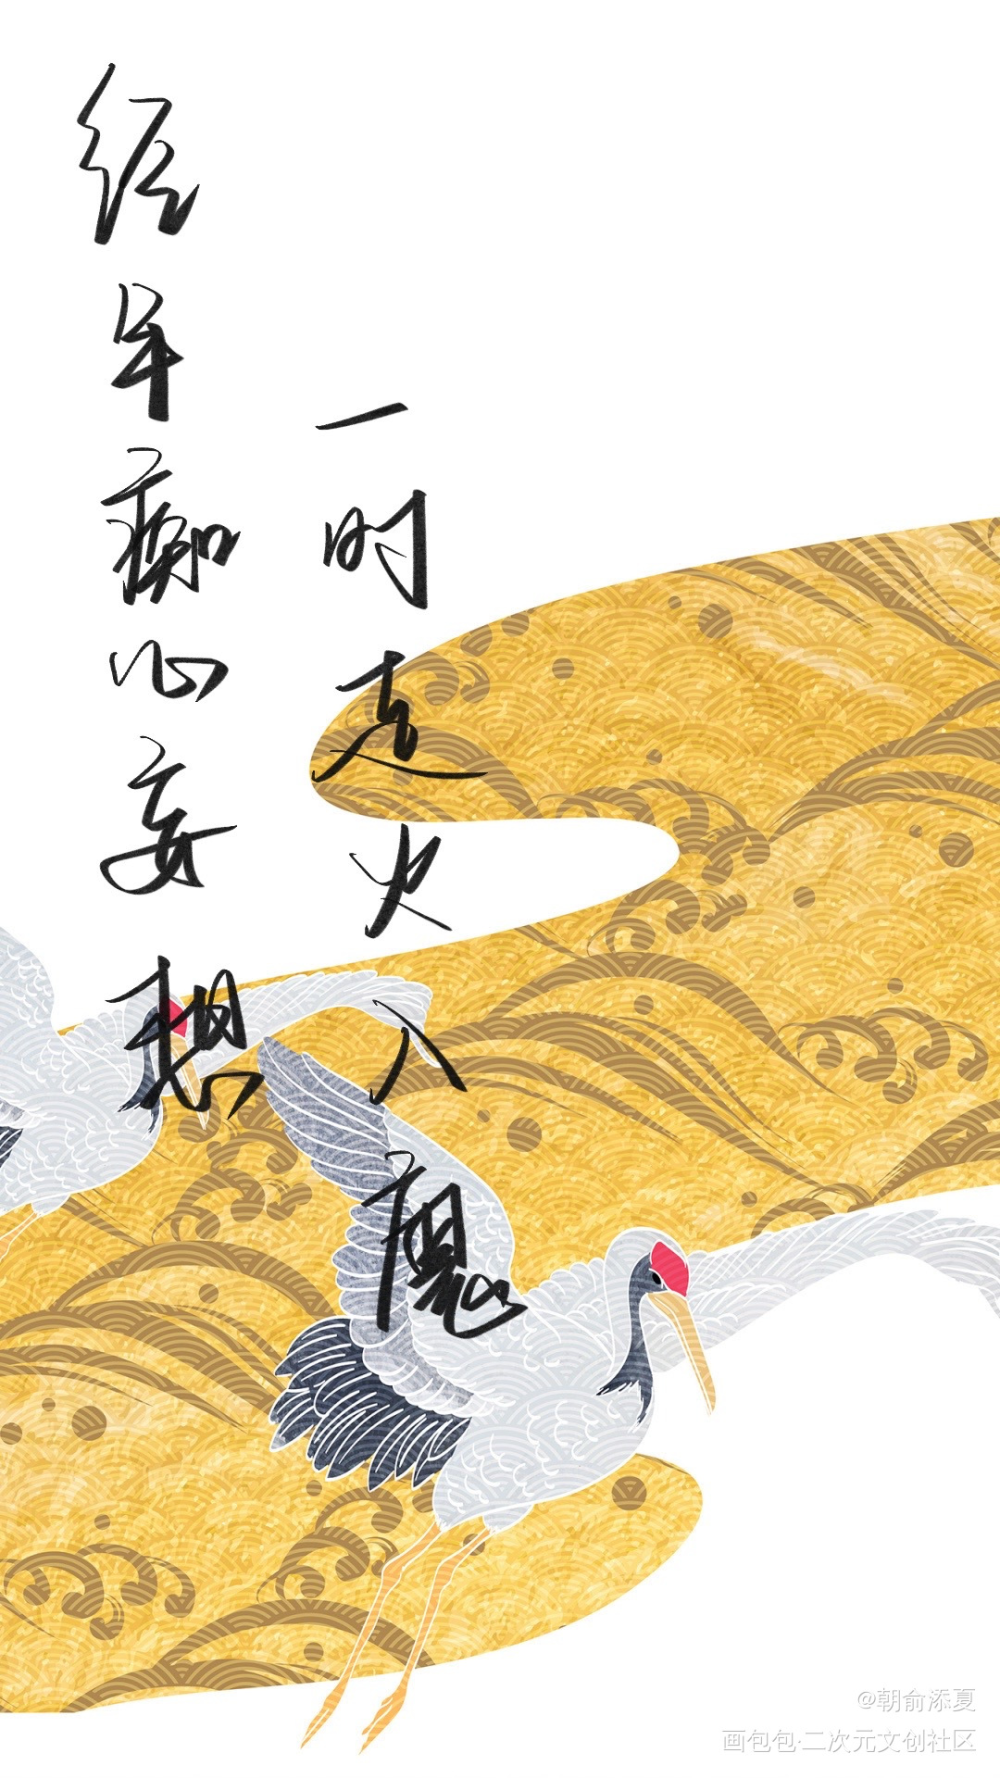 经年痴心妄想
一时走火入魔
@朝俞添夏
画包包·二次元文创社区